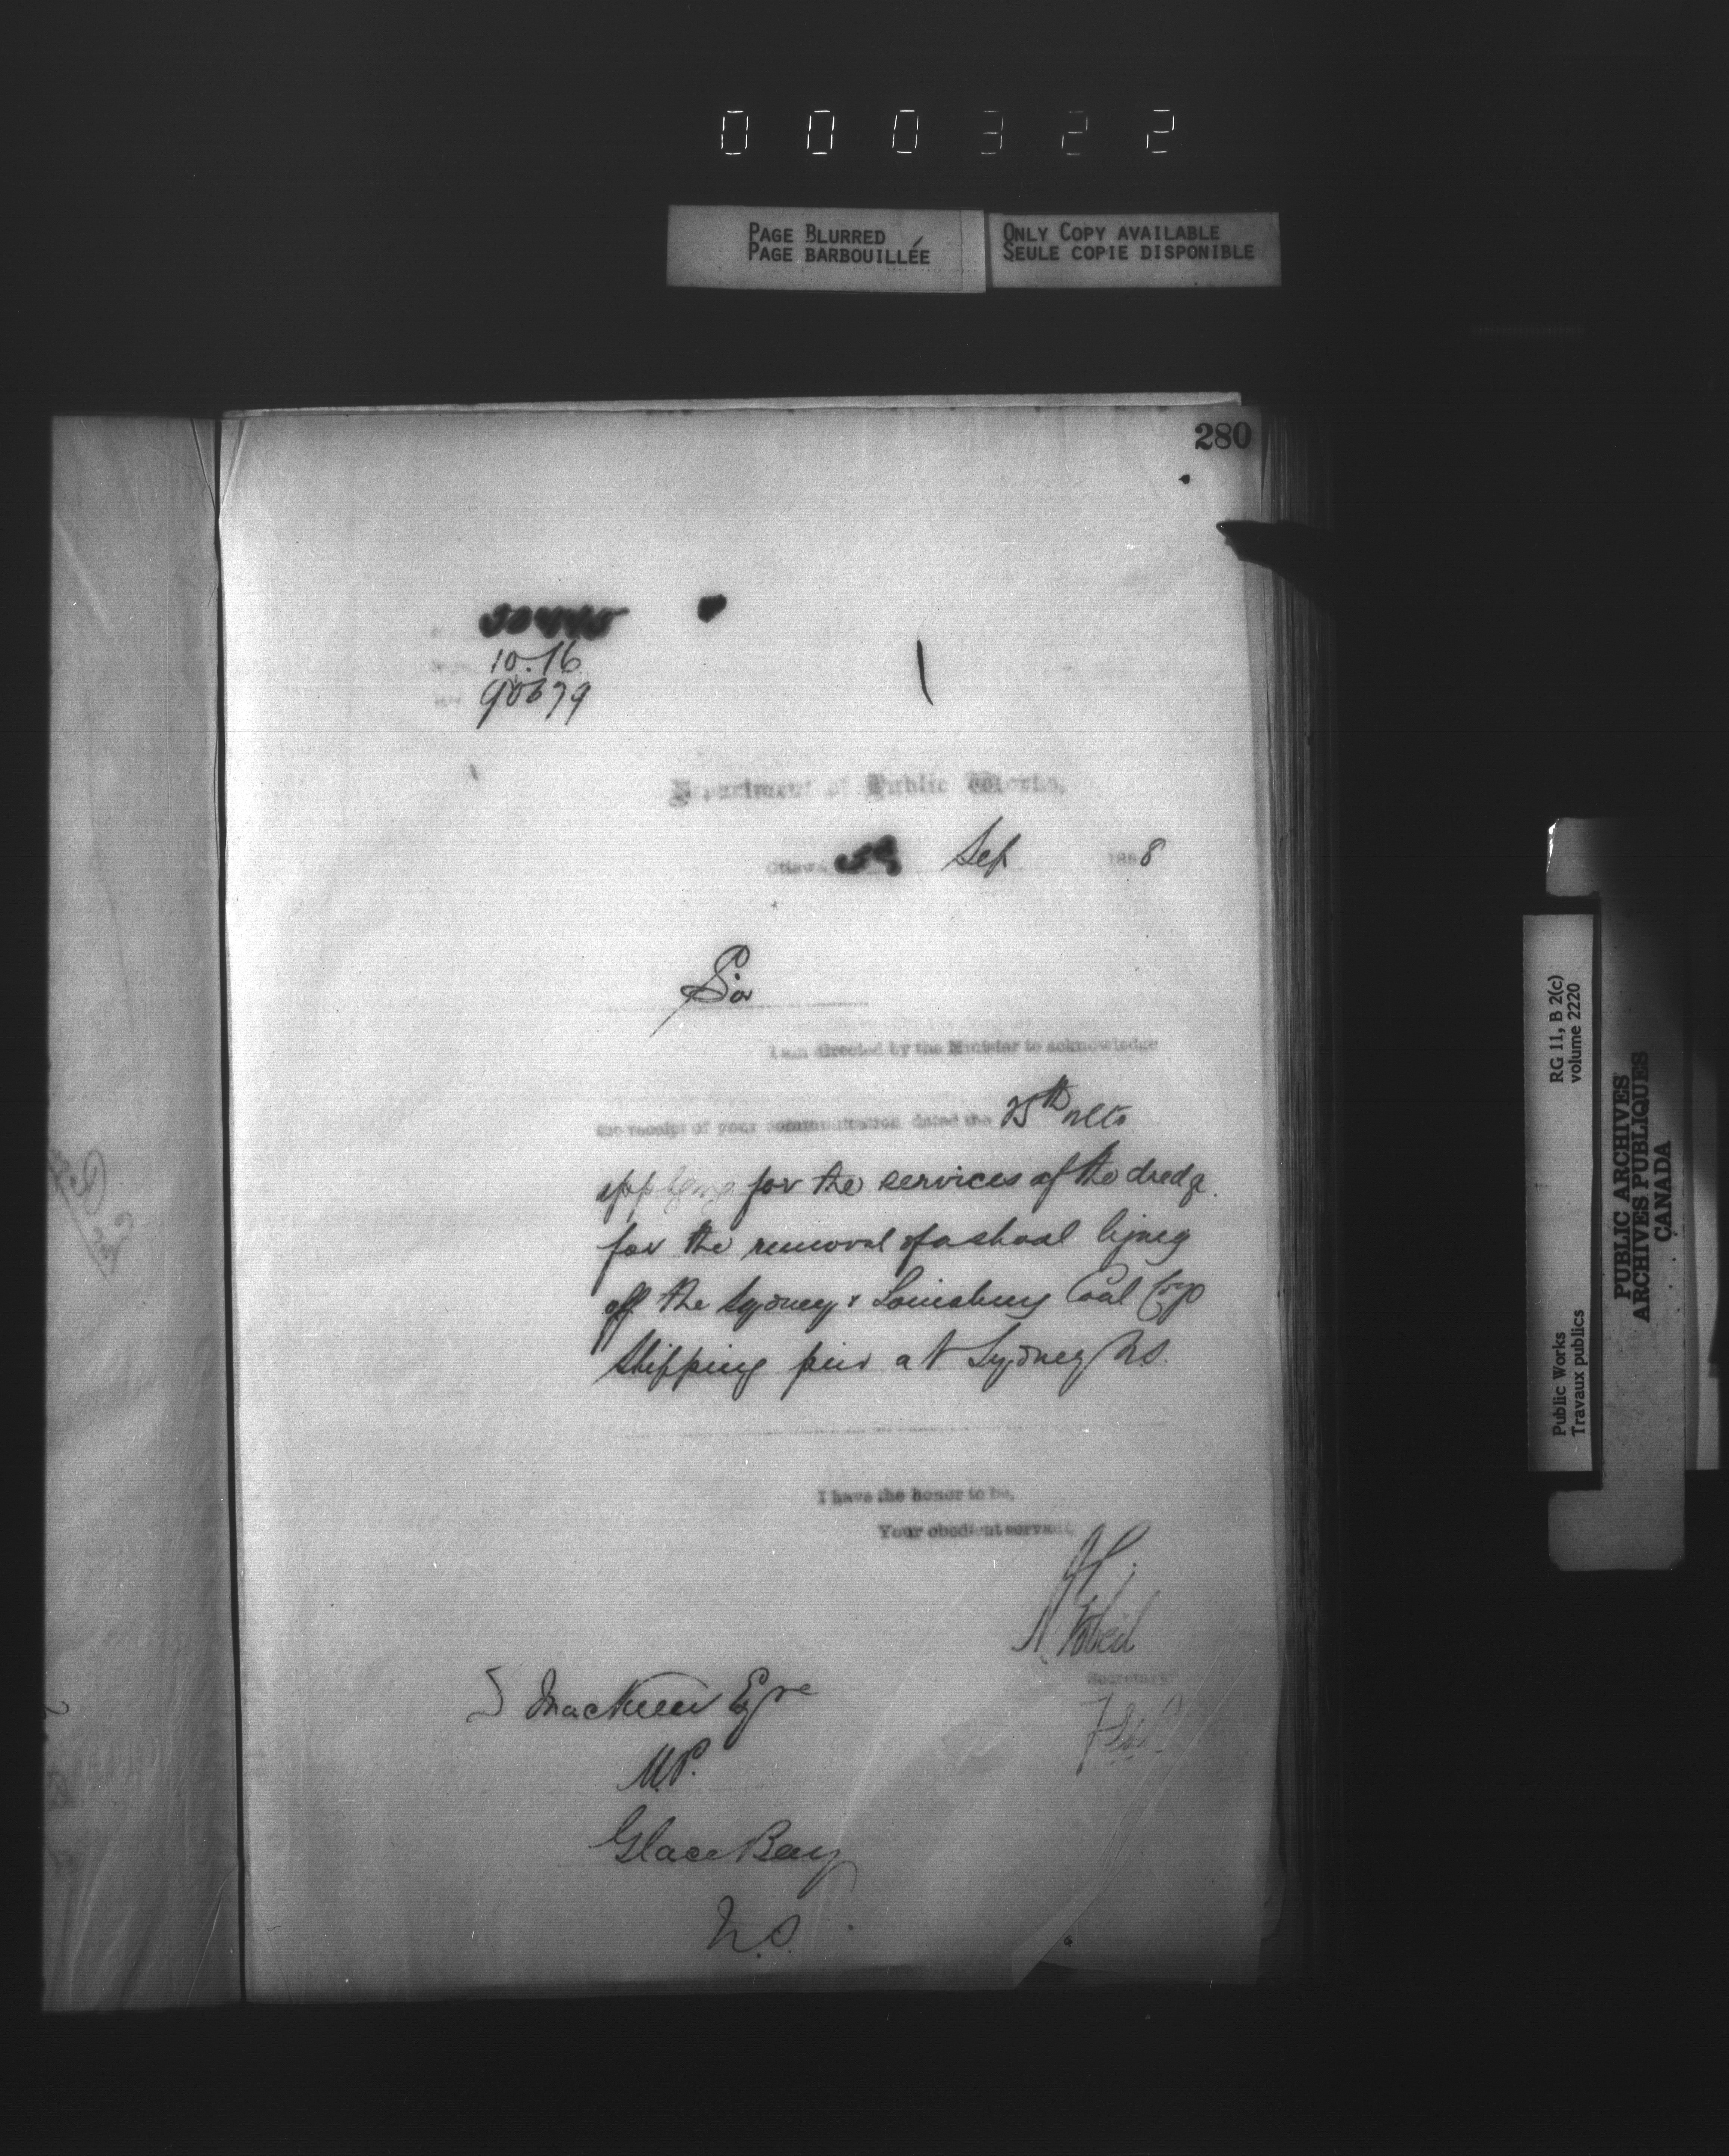 000322
PAGE BLURRED
PAGE BARBOUILLÉE
ONLY COPY AVAILABLE
SEULE COPIE DISPONIBLE
280
10.16
90679
Department of Public Works,
Ottawa Sep 1888
Sir
I am directed by the Minister to acknowledge
the receipt of your communication dated the 25th ulto
applying for the services of the dredge
for the removal of a shoal lying
off the Sydney & Louisburg Coal Coys
Shipping pier at Sydney N.S.
I have the honor to be,
Your obedient servant,
A Gobeil
Secretary
D MacKeen Eqre
M.P.
Glace Bay
N.S.
Public Works
Travaux publics
RG 11, B 2(c)
volume 2220
PUBLIC ARCHIVES
ARCHIVES PUBLIQUES
CANADA